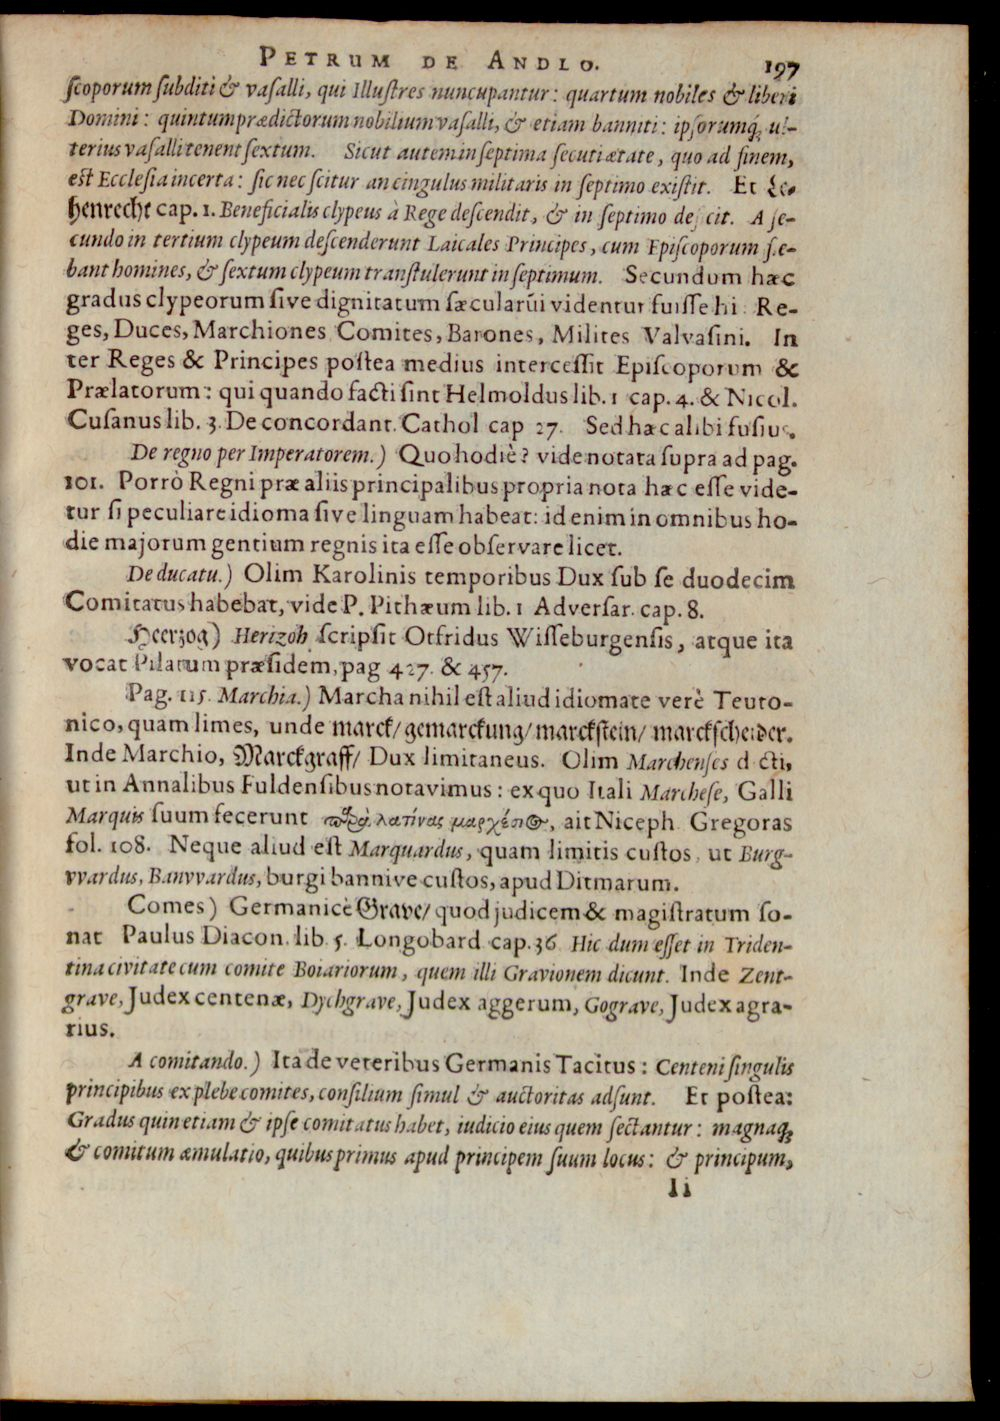 PETRUM DE ANDLO. 197
ſcoporum ſubditi & vaſalli, qui Illuſtres nuncupantur: quartum nobiles & liberi
Domini: quintum prædictorum nobilium vaſalli, & etiam banniti: ipſorumq́; ul-
terius vaſalli tenent ſextum. Sicut autem in ſeptima ſecuti ætate, quo ad finem,
est Eccleſia incerta: ſic nec ſcitur an cingulus militaris in ſeptimo exiſtit. Et Le-
henrecht cap. 1. Beneficialis clypeus à Rege deſcendit, & in ſeptimo deſicit. A ſe-
cundo in tertium clypeum deſcenderunt Laicales Principes, cum Epiſcoporum fie-
bant homines, & ſextum clypeum tranſtulerunt in ſeptimum. Secundum hæc
gradus clypeorum ſive dignitatum ſæcularũi videntur fuiſſe hi Re-
ges, Duces, Marchiones Comites, Barones, Milites Valvaſini. In
ter Reges & Principes poſtea medius interceſſit Epiſcoporum &
Prælatorum: qui quando facti ſint Helmoldus lib. 1 cap. 4. & Nicol.
Cuſanus lib. 3. De concordant. Cathol cap 27. Sed hæc alibi fuſius.
De regno per Imperatorem.) Quo hodiè? vide notata ſupra ad pag.
101. Porrò Regni præ aliis principalibus propria nota hæc eſſe vide-
tur ſi peculiare idioma ſive linguam habeat: id enim in omnibus ho-
die majorum gentium regnis ita eſſe obſervare licet.
De ducatu.) Olim Karolinis temporibus Dux ſub ſe duodecim
Comitatus habebat, vide P. Pithæum lib. 1 Adverſar. cap. 8.
Heerzog) Herizoh ſcripſit Otfridus Wiſſeburgenſis, atque ita
vocat Pilatum præſidem, pag 427. & 457.
Pag. 115. Marchia.) Marcha nihil eſt aliud idiomate verè Teuto-
nico, quam limes, unde marck/ gemarckung/ marckſtein/ marckſcheider.
Inde Marchio, Marckgraff/ Dux limitaneus. Olim Marchenſes d cti,
ut in Annalibus Fuldenſibus notavimus: ex quo Itali Marcheſe, Galli
Marquis ſuum fecerunt λατίνας, ait Niceph Gregoras
fol. 108. Neque aliud eſt Marquardus, quam limitis cuſtos, ut Burg-
vvardus, Banvvardus, burgi bannive cuſtos, apud Ditmarum.
Comes) Germanicè Grave/ quod judicem & magiſtratum ſo-
nat Paulus Diacon. lib. 5. Longobard cap. 36 Hic dum eſſet in Triden-
tina civitate cum comite Boiariorum, quem illi Gravionem dicunt. Inde Zent-
grave, Judex centenæ, Dychgrave, Judex aggerum, Gograve, Judex agra-
rius.
A comitando.) Ita de veteribus Germanis Tacitus: Centeni ſingulis
principibus ex plebe comites, conſilium ſimul & auctoritas adſunt. Et poſtea:
Gradus quin etiam & ipſe comitatus habet, iudicio eius quem ſectantur: magnaq́;
& comitum æmulatio, quibus primus apud principem ſuum locus: & principum,
Ii